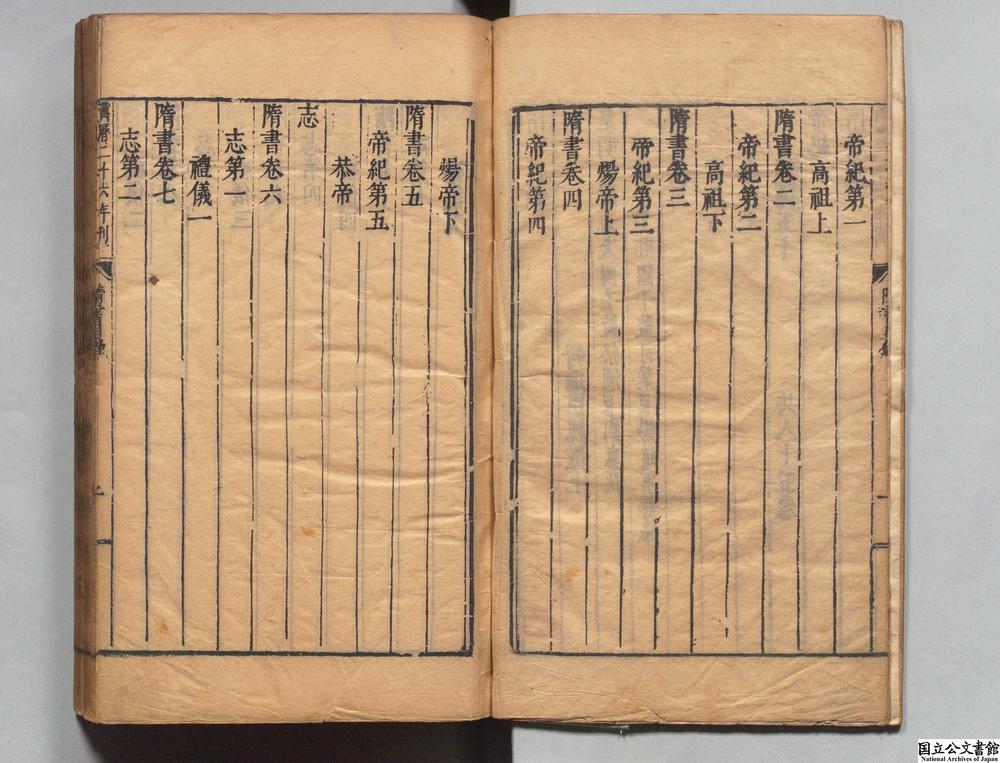 帝紀第一
高祖上
隋書卷二
帝紀第二
高祖下
隋書卷三
帝紀第三
煬帝上
隋書卷四
帝紀第四
煬帝下
隋書卷五
帝紀第五
恭帝
志
隋書卷六
志第一
禮儀一
隋書卷七
志第二
萬曆二十六年刊
隋書目錄
国立公文書館
National Archives of Japan